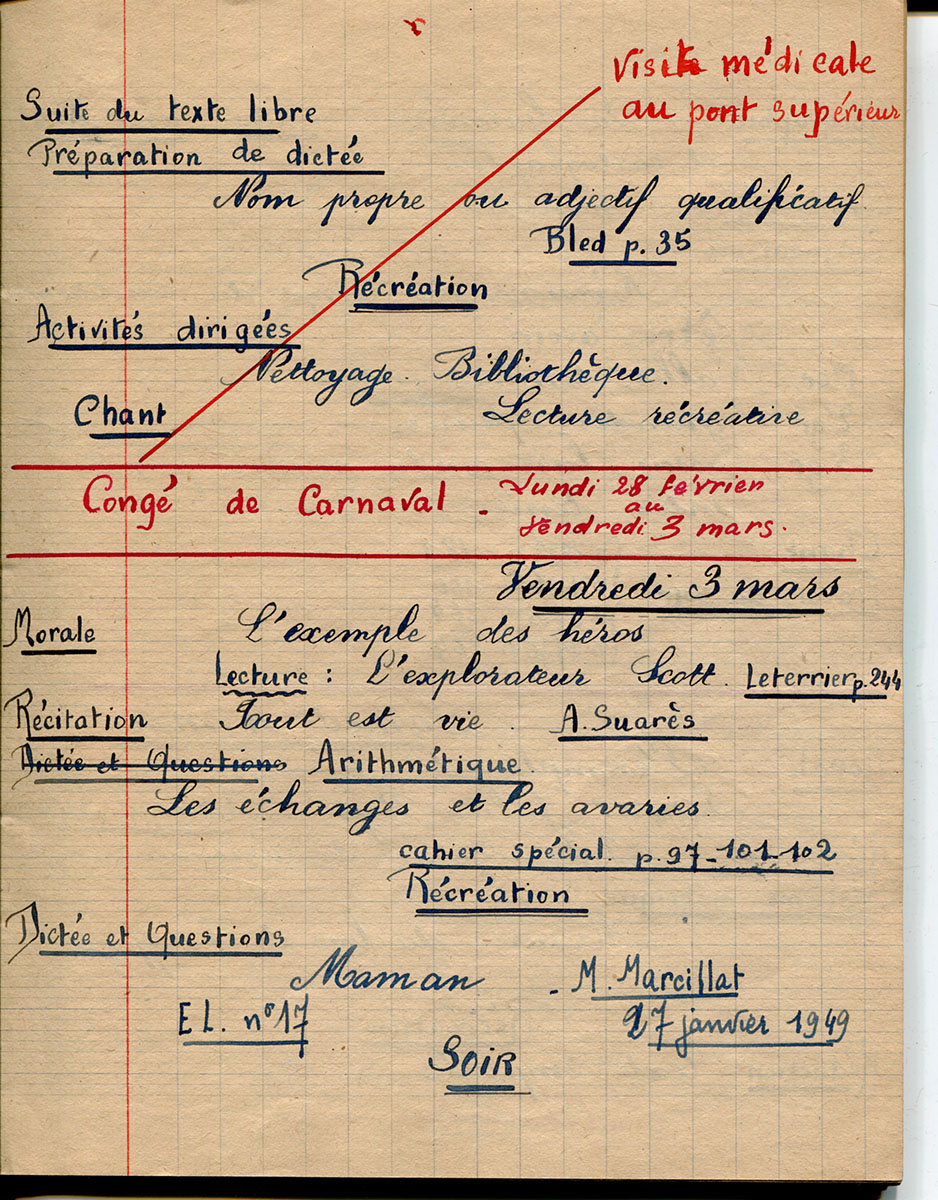 Visite médicale
au pont supérieur
Suite du texte libre
Préparation de dictée
Nom propre ou adjectif qualificatif
Bled p. 35
Récréation
Activités dirigées
Nettoyage. Bibliothèque.
Chant
Lecture récréative
Congé de Carnaval - Lundi 28 février
au
Vendredi 3 mars.
Vendredi 3 mars
Morale L'exemple des héros
Lecture : L'explorateur Scott. Leterrier p. 244
Récitation Tout est vie. A. Suarès
Dictée et Questions Arithmétique.
Les échanges et les avaries.
cahier spécial. p. 97-101-102
Récréation
Dictée et Questions
Maman - M. Marcillat
E L. n° 17 27 janvier 1949
SOIR